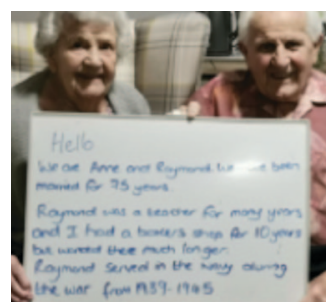 Hello
We are Anne and Raymond. We have been
married for 75 years.
Raymond was a teacher for many years
and I had a bakers shop for 10 years
but worked there much longer.
Raymond served in the navy during
the war from 1939-1945